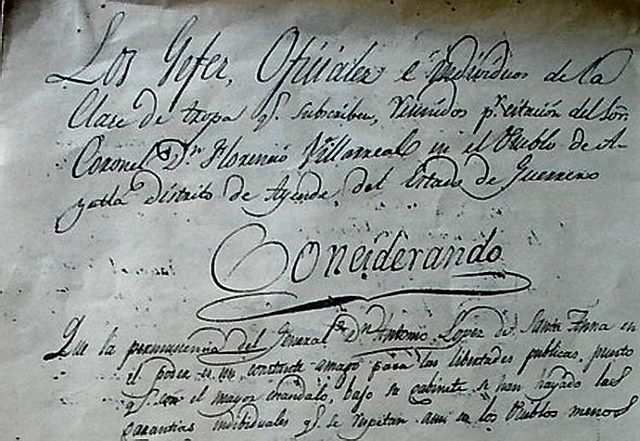 Los Gefes, Oficiales é individuos de la
Clase de tropa q.e subscriben, reunidos p.r citacion del Sôr.
Coronel D.n Florencio Villarreal en el Pueblo de A-
yutla distrito de Ayende del Estado de Guerrero
Considerando
Que la permanencia del General D.n Antonio Lopez de Santa Anna en
el poder es un constante amago para las libertades publicas, puesto
q.e con el mayor escandalo, bajo su gabinete se han hayado las
garantias individuales q.e se respetan aun en los Pueblos menos